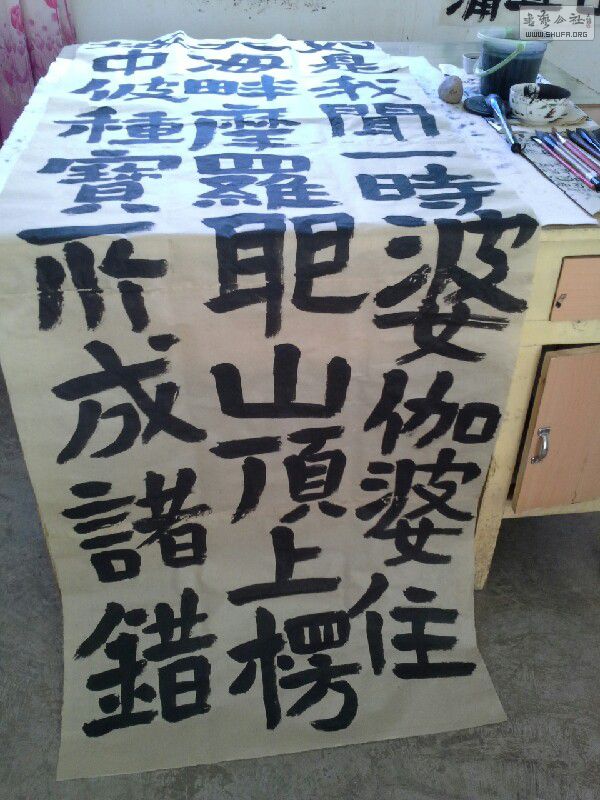 如是我聞一時婆伽婆住
大海畔摩羅耶山頂上楞
城中彼種寶所成諸錯
書藝公社
WWW.SHUFA.ORG